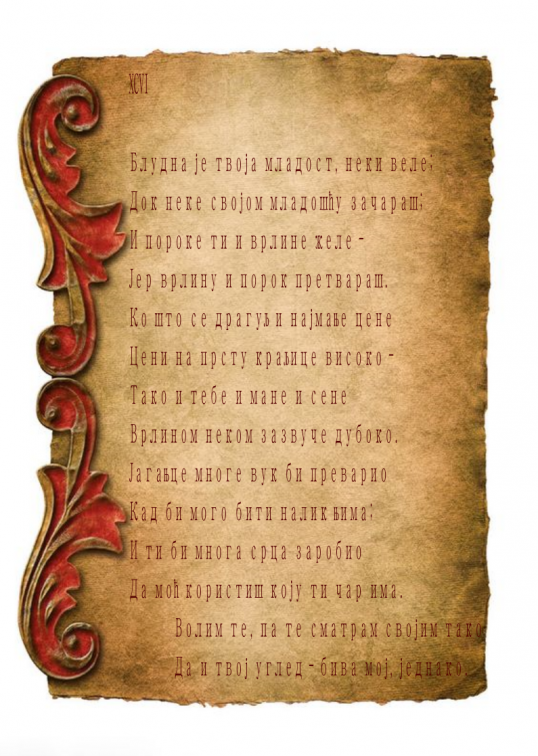 XCVI
Блудна је твоја младост, неки веле;
Док неке својом младошћу зачараш;
И пороке ти и врлине желе -
Јер врлину и порок претвараш.
Ко што се драгуљ и најмање цене
Цени на прсту краљице високо -
Тако и тебе и мане и сене
Врлином неком зазвуче дубоко.
Јагањце многе вук би преварио
Кад би мого бити налик њима;
И ти би многа срца заробио
Да моћ користиш коју ти чар има.
Волим те, па те сматрам својим тако
Да и твој углед - бива мој, једнако.